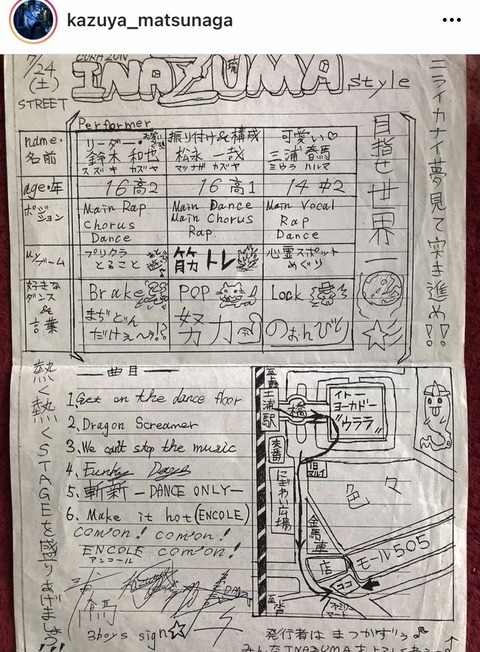 kazuya_matsunaga
7/24
(土)
STREET
INAZUMA style
ニライカナイ夢見て突き進め!!
目指せ世界一
Performer
name・名前
リーダー 鈴木 和也 スズキ カズヤ
振り付け&構成 松永 一哉 マツナガ カズヤ
可愛い♡ 三浦 春馬 ミウラ ハルマ
age・年
16 高2
16 高1
14 中2
ポジション
Main Rap Chorus Dance
Main Dance Main Chorus Rap
Main Vocal Rap Dance
Myブーム
プリクラとること
筋トレ
心霊スポットめぐり
好きなダンス&言葉
Brake まぢどんだけぇ〜!?
POP 努力
Lock のぉんびり
熱く熱くSTAGEを盛りあげましょう!!
一曲目
1. Get on the dance floor
2. Dragon Screamer
3. We can't stop the music
4. Funky Days
5. 斬新 —DANCE ONLY—
6. Make it hot (ENCOLE)
com'on! com'on!
ENCOLE com'on!
アンコール
3boys sign☆
土浦駅
橋
イトーヨーカドー
"ウララ"
にぎわい広場
旧マルイ
色々
金馬車
モール505
店
ココ
ファミリーマート
発行者は まつかずっ
みんなINAZUMAをよろしくねっ